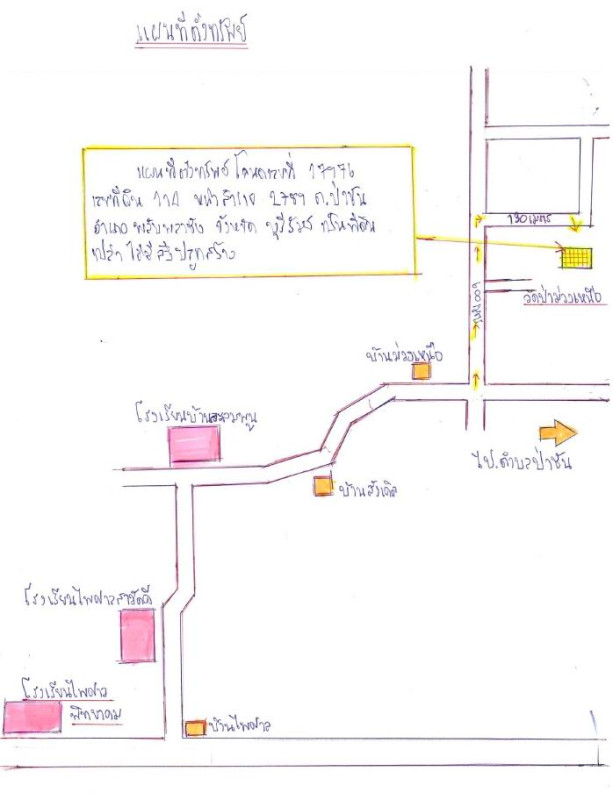 แผนที่ตั้งทรัพย์
แผนที่ตั้งทรัพย์ โฉนดเลขที่ 17976
เลขที่ดิน 114 หน้าสำรวจ 2759 ต.ป่าชัน
อำเภอ พลับพลาชัย จังหวัด บุรีรัมย์ เป็นที่ดิน
เปล่า ไม่มีสิ่งปลูกสร้าง
130 เมตร
600 เมตร
วัดป่าม่วงเหนือ
บ้านม่วงเหนือ
โรงเรียนบ้าน
ไป.ตำบลป่าชัน
บ้าน
โรงเรียนไพศาล
โรงเรียนไพศาล
พิทยาคม
บ้านไพศาล